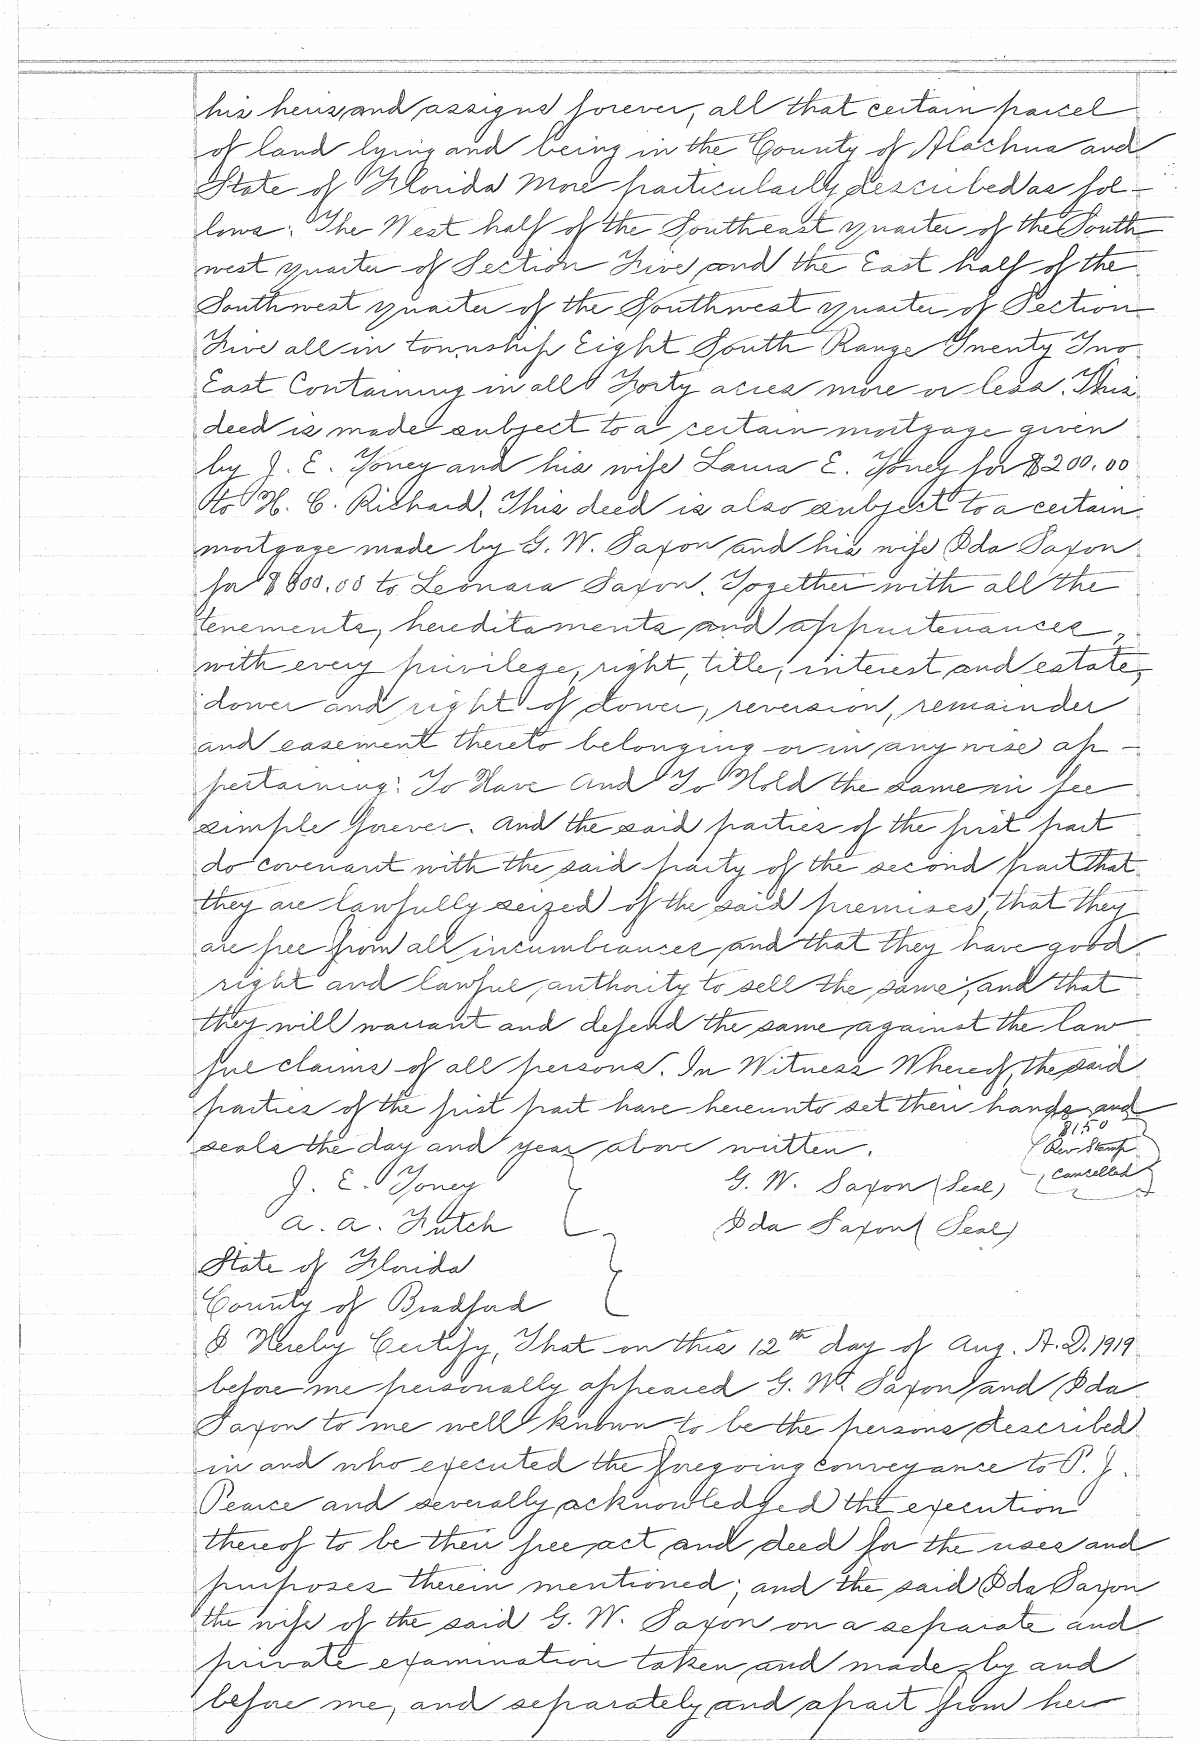 his heirs and assigns forever, all that certain parcel
of land lying and being in the County of Alachua and
State of Florida More particularly described as fol-
lows: The West half of the Southeast quarter of the South
west quarter of Section Five and the East half of the
Southwest quarter of the Southwest quarter of Section
Five all in township Eight South Range Twenty Two
East Containing in all Forty acres more or less. This
deed is made subject to a certain mortgage given
by J. E. Toney and his wife Laura E. Toney for $200.00
to H. C. Richard. This deed is also subject to a certain
mortgage made by G. W. Saxon and his wife Ida Saxon
for $800.00 to Leonara Saxon. Together with all the
tenements, hereditaments and appurtenances,
with every privilege, right, title, interest and estate,
dower and right of dower, reversion, remainder
and easement thereto belonging or in any wise ap-
pertaining: To Have And To Hold the same in fee
simple forever. And the said parties of the first part
do covenant with the said party of the second part that
they are lawfully seized of the said premises, that they
are free from all incumbrances and that they have good
right and lawful authority to sell the same; and that
they will warrant and defend the same against the law
ful claims of all persons. In Witness Whereof, the said
parties of the first part have hereunto set their hands and
seals the day and year above written.
$1.50
Rev Stamp
Cancelled
J. E. Toney G. W. Saxon (Seal)
A. A. Futch Ida Saxon (Seal)
State of Florida
County of Bradford
I Hereby Certify, That on this 12th day of Aug. A.D. 1919
before me personally appeared G. W. Saxon and Ida
Saxon to me well known to be the persons described
in and who executed the foregoing conveyance to P. J.
Pearce and severally acknowledged the execution
thereof to be their free act and deed for the uses and
purposes therein mentioned; and the said Ida Saxon
the wife of the said G. W. Saxon on a separate and
private examination taken and made by and
before me, and separately and apart from her